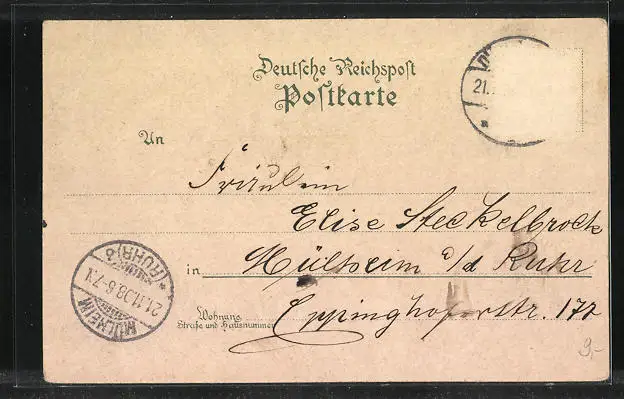 Deutsche Reichspost
Postkarte
An
21.
Fräulein
Elise Steckelbrock
in Mülheim a/d Ruhr
Wohnung
Straße und Hausnummer
Eppinghoferstr. 177
MÜLHEIM (RUHR)
21.11.98.6-7N.
9,-